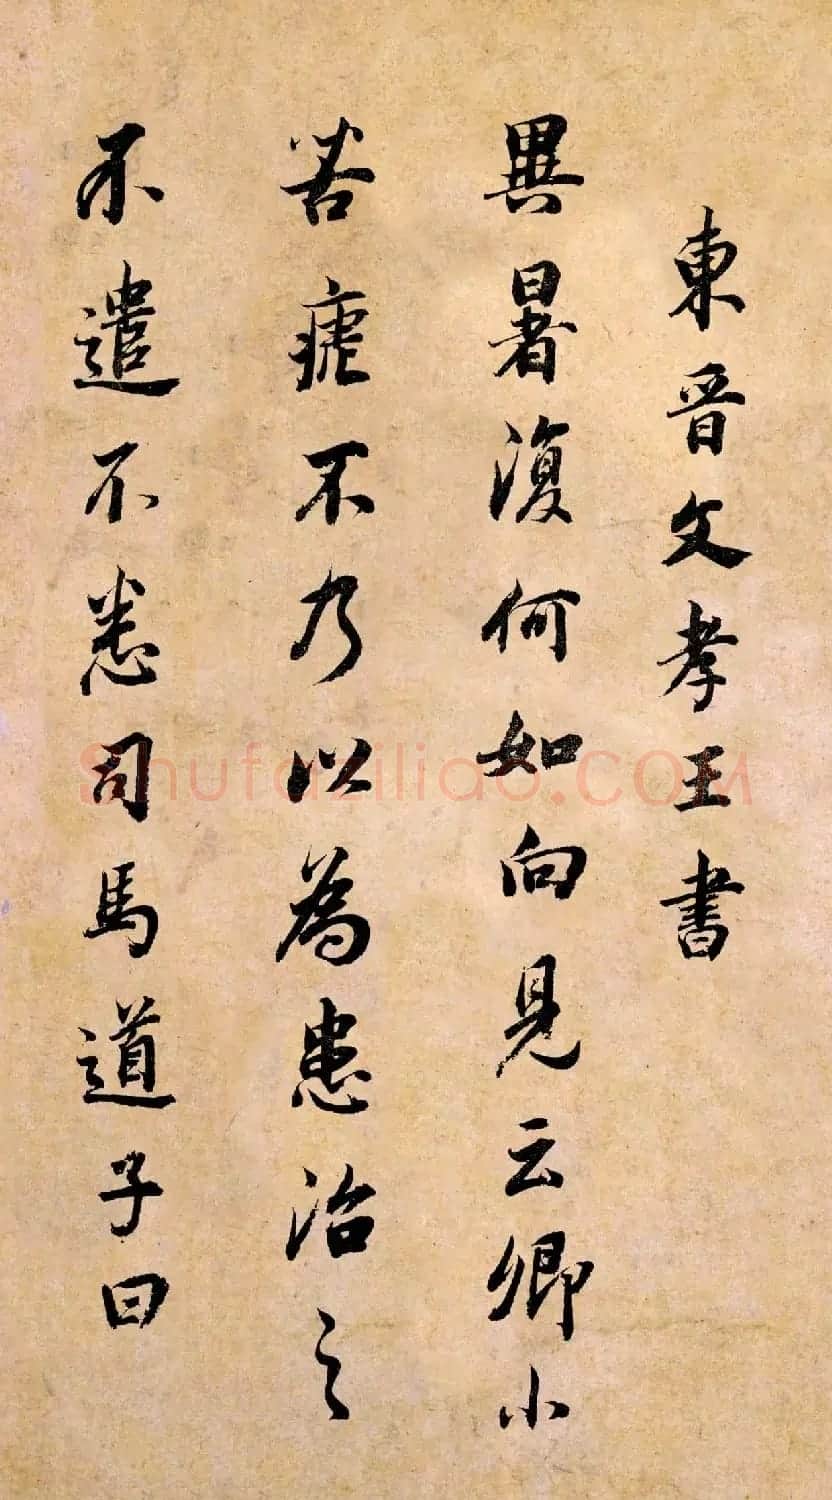 東晉文孝王書
異暑復何如向見云卿小
苦瘧不乃以為患治之
不遣不悉司馬道子曰
Shufaziliao.COM